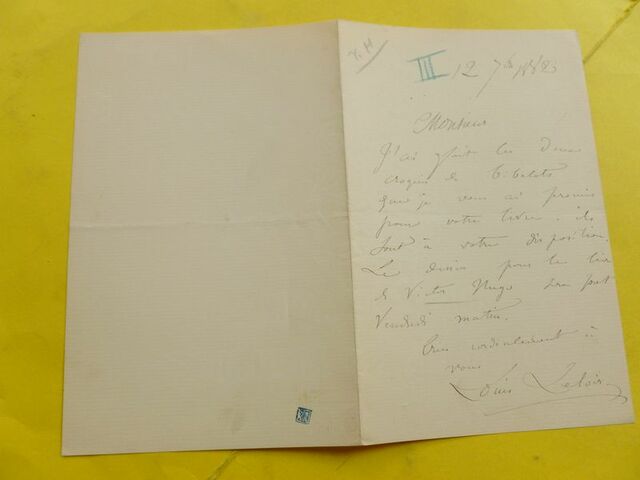 V. H
III 12 7bre 1882
Monsieur
J'ai fait les deux
croquis de bibelots
que je vous ai promis
pour votre livre. ils
sont à votre disposition.
Le dessin pour le livre
de Victor Hugo sera fait
Vendredi matin.
bien cordialement à
vous
Louis Leloir